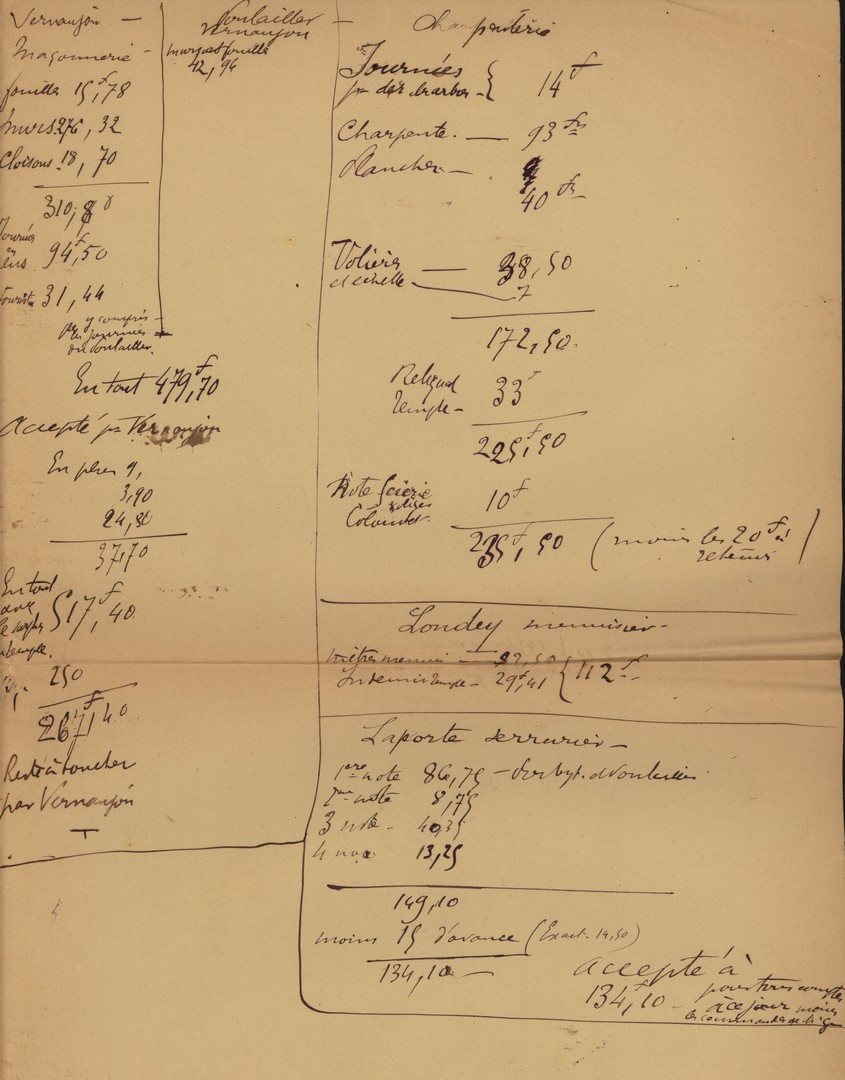 Vernanjon —
Maçonnerie —
fouilles 15f,78
Murs 276,32
Cloisons . 18,70
310,80
Journées
en
94f,50
31,44
y compris —
les journées
du Poulailler.
En tout 479f,70
Accepté pr Vernanjon
En plus 9,
3,90
24,80
37,70
En tout
avec
le surplus
temple.
517f,40
250
267f,40
Reste à toucher
par Vernanjon
Poulailler —
Vernanjon
murs et fouille
42,94
Charpenterie
Journées
pr des arbres — { 14f
Charpente. — 93 frs
Plancher — . 40 frs
Volière — 38,50
et échelle — 7
172,50.
Temple — 33f
225f,50
Note Scierie
Colombet. 10f
235f,50 (moins les 20f à
retenir)
Londey menuisier —
mètres menuis — 82,50
Temple — 29f,41 } 112f
Laporte serrurier —
1ère note 86,75 —
2me note 8,75
3 note — 40,35
4 note 13,25
149,10
moins 15 d'avance (Exact. 14,50)
134,10 —
accepté à
134f,10 — pour tous comptes
à ce jour moins
les commandes de